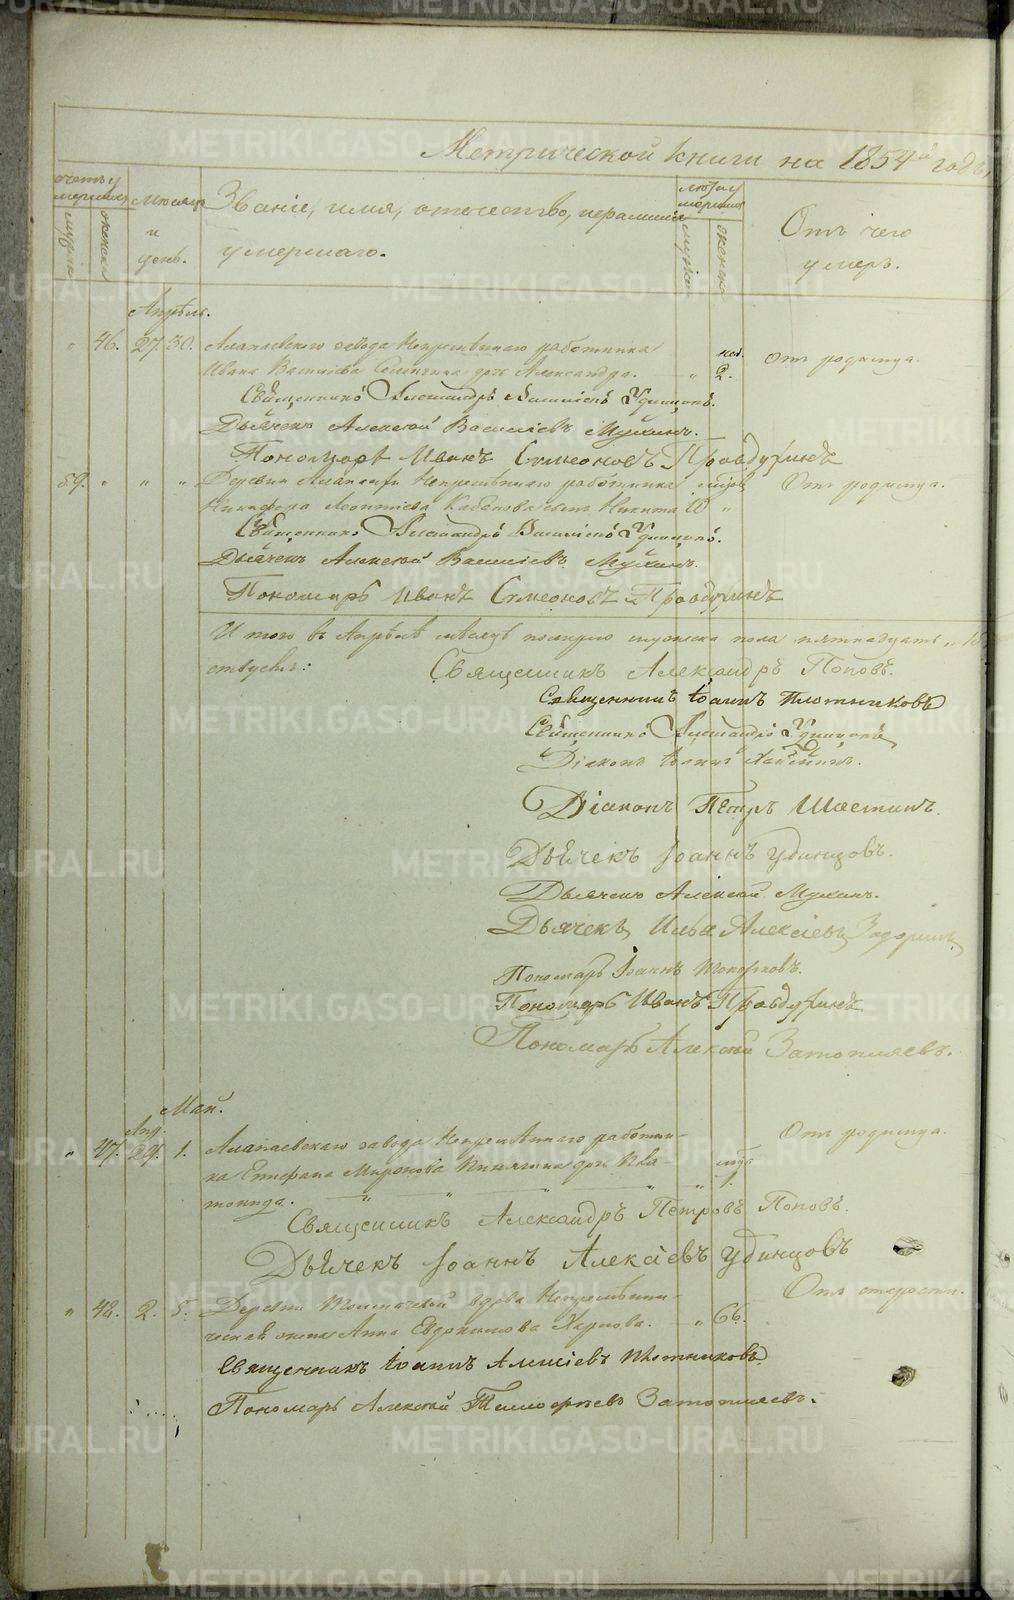 Метрической книги на 1854й годъ,
счетъ умершихъ
мужеска
женска
Мѣсяцъ и день.
Званіе, имя, отечество, и фамилія умершаго.
лѣта умершаго
мужеска
женска
Отъ чего умеръ.
Апрѣль.
" 46. 27. 30. Алапаевскаго завода Непремѣннаго работника нед.
Ивана Васильева дочь Александра. " 2. Отъ родимца.
Священникъ Александръ Васильевъ Удинцовъ.
Дьячекъ Алексѣй Васильевъ Мухинъ.
Пономарь Иванъ Сѵмеоновъ Правдухинъ
59. " " " Деревни Непремѣннаго работника Отъ родимца.
Никифора Леонтьева Кабакова сынъ Никита 10 "
Священникъ Александръ Васильевъ Удинцовъ.
Дьячекъ Алексѣй Васильевъ Мухинъ.
Пономарь Иванъ Сѵмеоновъ Правдухинъ
Итого въ Апрѣлѣ мѣсяцѣ померло мужеска пола пятнадцать
Священникъ Александръ Поповъ.
Священникъ Іоаннъ Плотниковъ
Священникъ Александръ Удинцовъ
Діаконъ Іоаннъ
Діаконъ Петръ Шастинъ.
Дьячекъ Іоаннъ Удинцовъ.
Дьячекъ Алексѣй Мухинъ.
Дьячекъ Илья Алексіевъ Задоринъ
Пономарь Іоаннъ Топорковъ.
Пономарь Иванъ Правдухинъ.
Пономарь Алексѣй Затопляевъ.
Май.
Апр.
" 47. 29. 1. Алапаевскаго завода Непремѣннаго работни- Отъ родимца.
ка Епифана Миронова дочь Ива- " 1.
тонида.
Священникъ Александръ Петровъ Поповъ.
Дьячекъ Іоаннъ Алексіевъ Удинцовъ
" 48. 2. 5. Деревни вдова Непремѣнни- Отъ старости.
ческая жена Анна Евдокимова Харлова. " 66.
Священникъ Іоаннъ Алексіевъ Плотниковъ.
Пономарь Алексѣй Тимоѳеевъ Затопляевъ.
METRIKI.GASO-URAL.RU